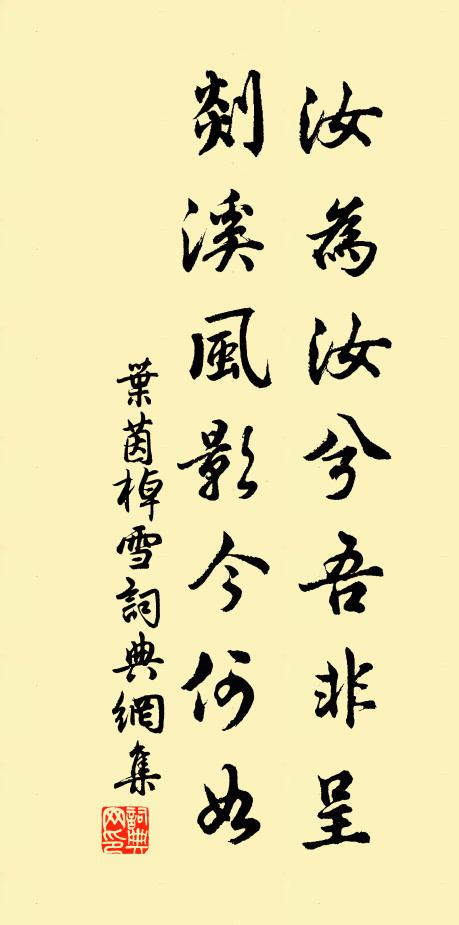 汝為汝兮吾非呈
剡溪風影今何如
葉茵棹雪詞典網集
詞典網印